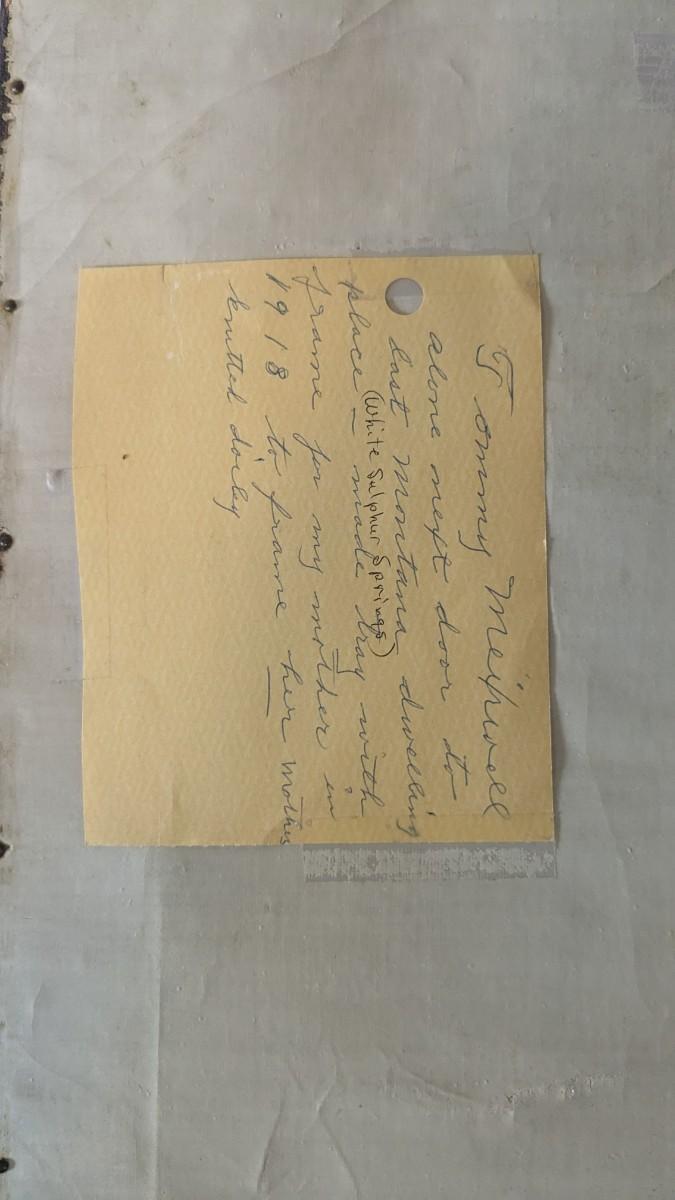 Tommy Meipwell
alone next door to
last Montana dwelling
(White Sulphur Springs)
place – made tray with
frame for my mother in
1918 to frame her mothers
knitted doily